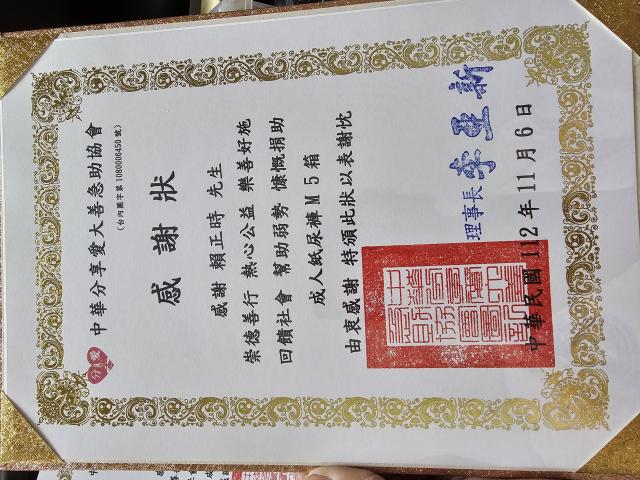 分享愛
中華分享愛大善急助協會
(台內團字第1080008450號)
感謝狀
感謝 賴正時 先生
崇德善行 熱心公益 樂善好施
回饋社會 幫助弱勢 慷慨捐助
成人紙尿褲M5箱
由衷感謝 特頒此狀以表謝忱
理事長
中華民國112年11月6日